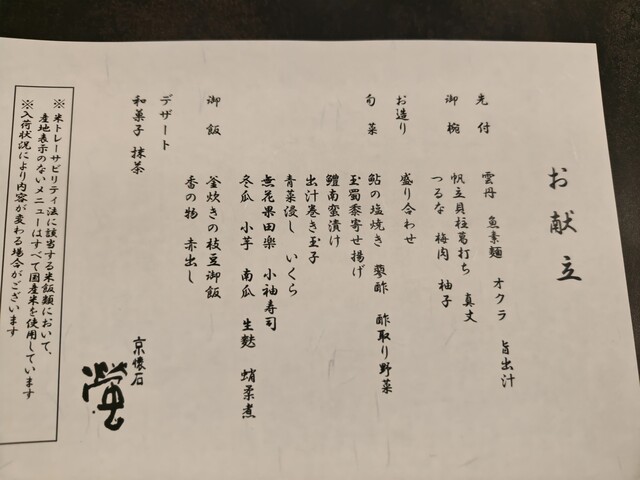 お献立
先付
雲丹 魚素麺 オクラ 旨出汁
御椀
帆立貝柱葛打ち 真丈
つるな 梅肉 柚子
お造り
盛り合わせ
旬菜
鮎の塩焼き 蓼酢 酢取り野菜
玉蜀黍寄せ揚げ
鱧南蛮漬け
出汁巻き玉子
青菜浸し いくら
無花果田楽 小袖寿司
冬瓜 小芋 南瓜 生麩 蛸柔煮
御飯
釜炊きの枝豆御飯
香の物 赤出し
デザート
和菓子 抹茶
京懐石
螢
※米トレーサビリティ法に該当する米飯類において、
産地表示のないメニューはすべて国産米を使用しています
※入荷状況により内容が変わる場合がございます